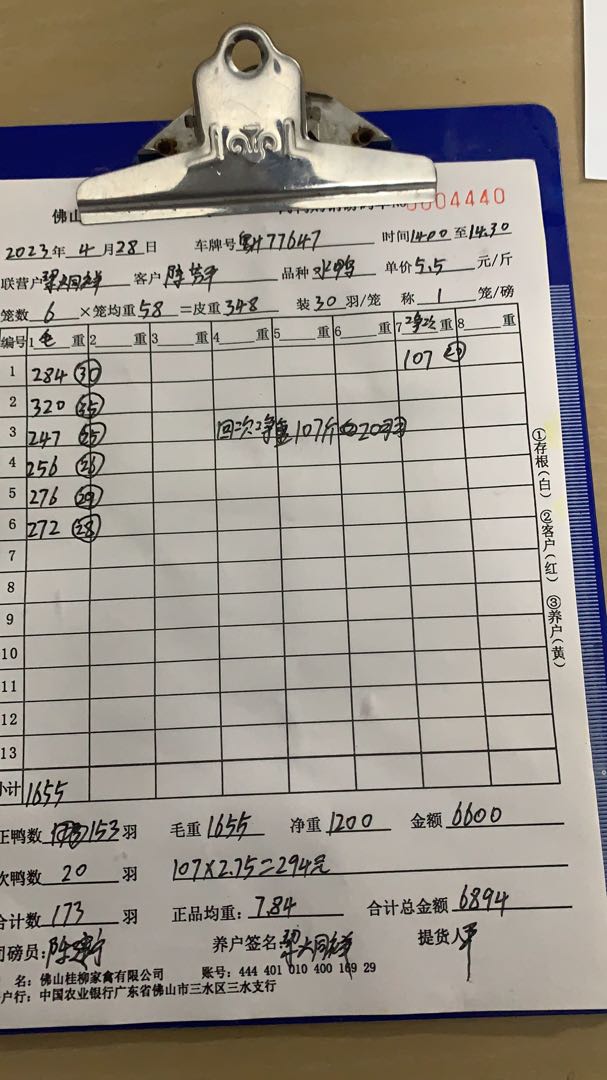 佛山
0004440
2023年 4月 28日 车牌号 粤H77647 时间14:00至14:30
联营户 梁大同祥 客户 品种 水鸭 单价5.5 元/斤
笼数 6 ×笼均重58 =皮重348 装30羽/笼 称 1 笼/磅
编号 1 毛 重 2 重 3 重 4 重 5 重 6 重 7 净次 重 8 重
1 284 30 107 20
2 320 35
3 247 25 回次净重107斤 20羽
4 256 26
5 276 29
6 272 28
7
8
9
10
11
12
13
小计 1655
正鸭数 153 羽 毛重 1655 净重 1200 金额 6600
次鸭数 20 羽 107×2.75=294元
合计数 173 羽 正品均重: 7.84 合计总金额 6894
司磅员: 养户签名: 梁大同祥 提货人
名: 佛山桂柳家禽有限公司 账号: 444 401 010 400 169 29
户行: 中国农业银行广东省佛山市三水区三水支行
①存根(白) ②客户(红) ③养户(黄)